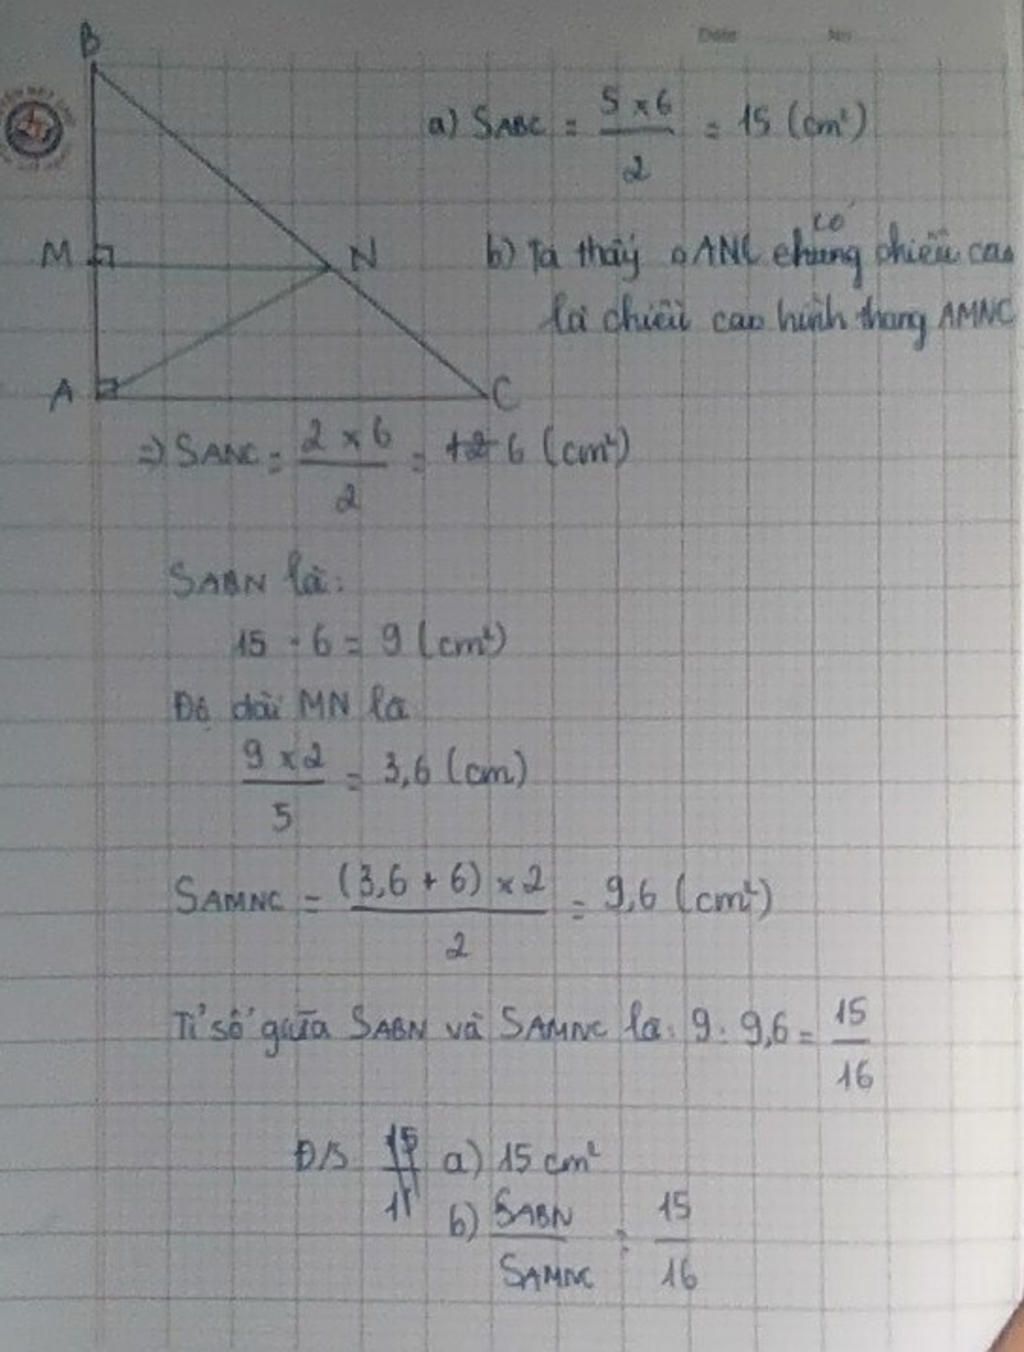 Date No
B
a) SABC = 5 x 6 / 2 = 15 (cm²)
M N
có
b) Ta thấy △ANC chung chiều cao
là chiều cao hình thang AMNC
A C
=> SANC = 2 x 6 / 2 = 12 6 (cm²)
SABN là:
15 - 6 = 9 (cm²)
Độ dài MN là
9 x 2 / 5 = 3,6 (cm)
SAMNC = (3,6 + 6) x 2 / 2 = 9,6 (cm²)
Tỉ số giữa SABN và SAMNC là: 9 : 9,6 = 15 / 16
Đ/S 15 / 1 a) 15 cm²
b) SABN / SAMNC = 15 / 16